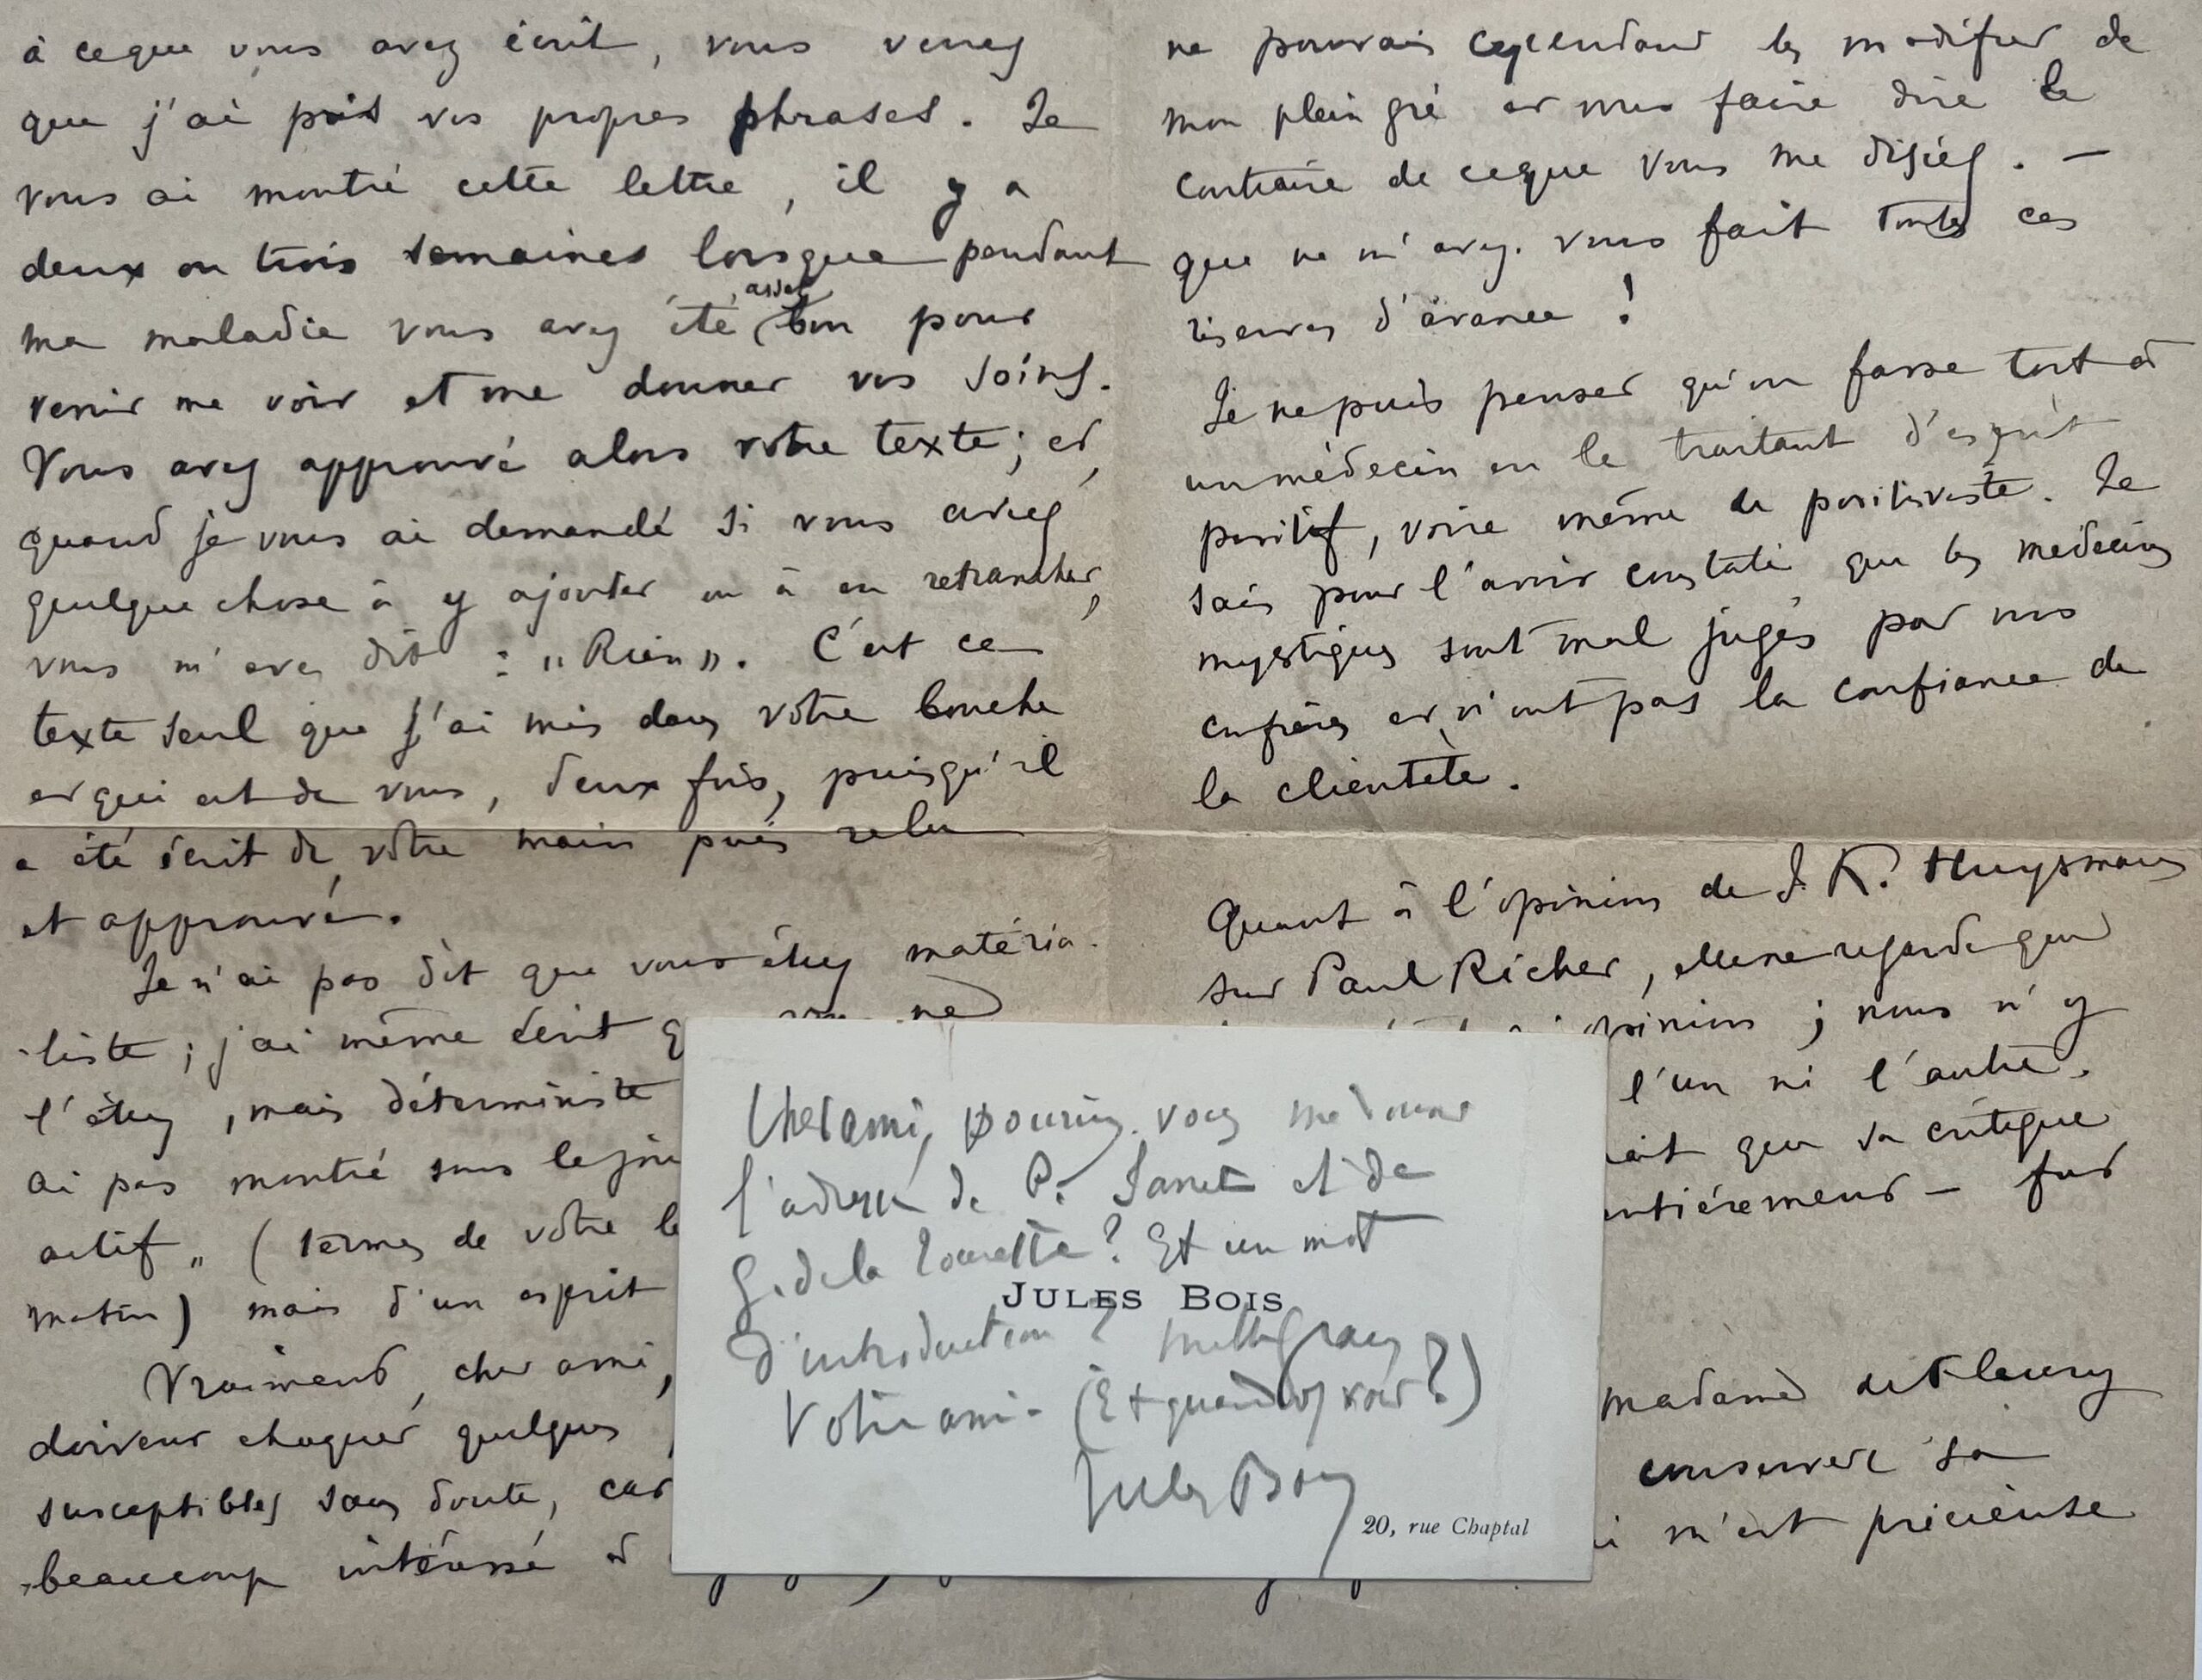 à ceque vous avez écrit, vous verrez
que j'ai pris vos propres phrases. Je
vous ai montré cette lettre, il y a
deux ou trois semaines lorsque pendant
ma maladie vous avez été assez bon pour
venir me voir et me donner vos soins.
Vous avez approuvé alors votre texte; et,
quand je vous ai demandé si vous aviez
quelque chose à y ajouter ou à en retrancher,
vous m'avez dit : „Rien”. C'est ce
texte seul que j'ai mis dans votre bouche
et qui est de vous, deux fois, puisqu'il
a été écrit de votre main puis relu
et approuvé.
Je n'ai pas dit que vous étiez matéria-
-liste; j'ai même écrit ne
l'étiez, mais déterministe
ai pas montré sous le
actif „ (termes de votre
matin) mais d'un esprit
Vraiment, cher ami,
doivent choquer quelques
susceptibles sans doute, car
beaucoup intéressé
ne pouvais cependant les modifier de
mon plein gré et vous faire dire le
contraire de ceque vous me disiez. —
que ne m'avez-vous fait toutes ces
réserves d'avance !
Je ne puis penser qu'on fasse tort à
un médecin en le traitant d'esprit
positif, voire même de positiviste. Je
sais pour l'avoir constaté que les médecins
mystiques sont mal jugés par vos
confrères et n'ont pas la confiance de
la clientèle.
Quant à l'opinion de J. K. Huysmans
sur Paul Richer, elle ne regarde que
opinion ; nous n'y
l'un ni l'autre.
que sa critique
entièrement — fut
madame de Fleury
conserver sa
m'est précieuse
Cher ami, pourriez-vous me donner
l'adresse de P. Janet et de
G. de la Tourette? Et un mot
JULES BOIS
d'introduction ? Mille grâces
Votre ami - (Et quand vs voir?)
Jules Bois
20, rue Chaptal